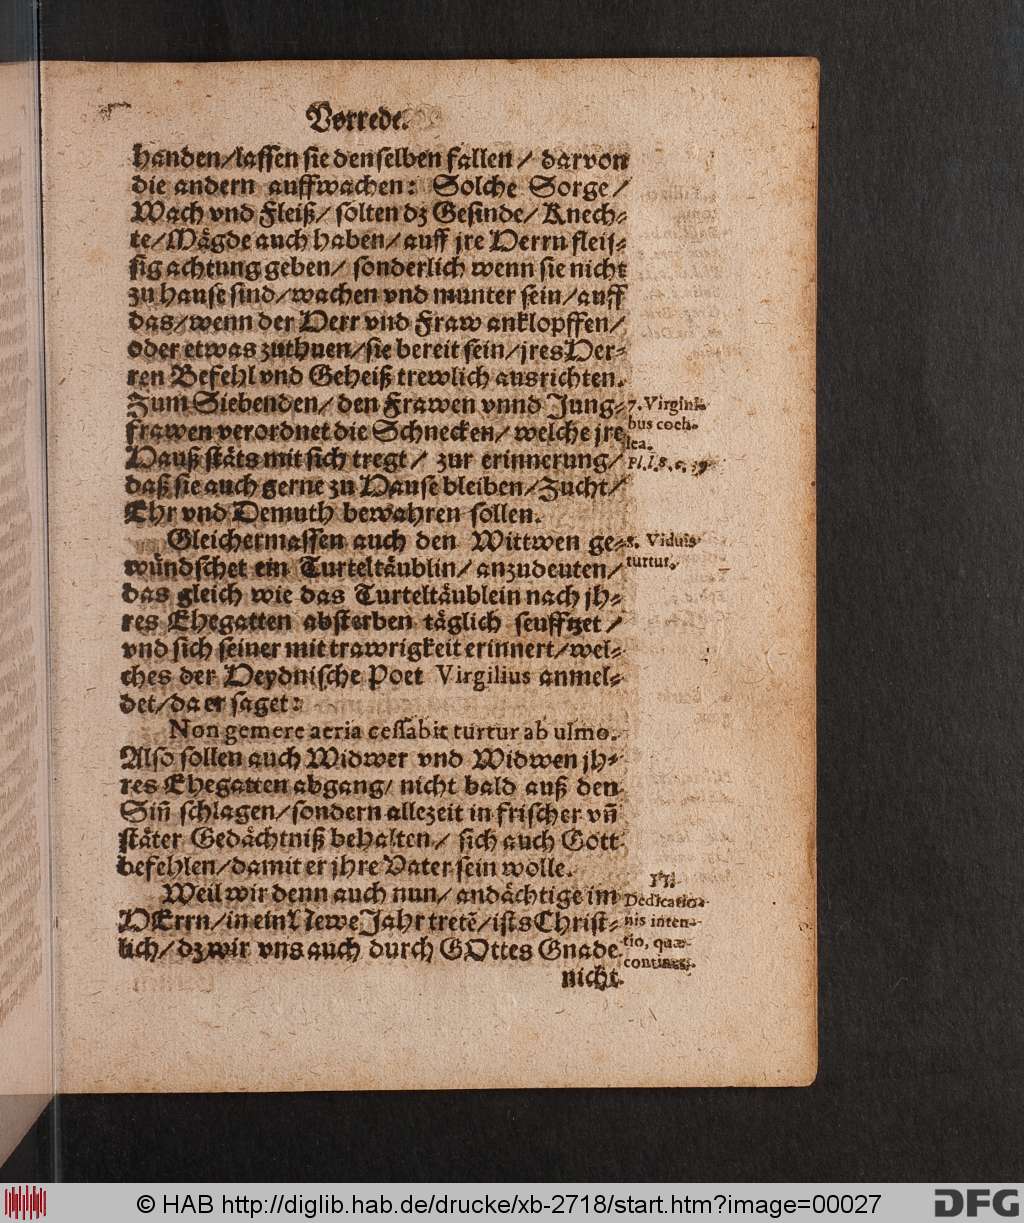 Vorrede.
handen/lassen sie denselben fallen/ darvon
die andern auffwachen: Solche Sorge/
Wach vnd Fleiß/ solten dz Gesinde/ Knech-
te/Mägde auch haben/auff jre Herrn fleis-
sig achtung geben/ sonderlich wenn sie nicht
zu hause sind/wachen vnd munter sein/auff
das/wenn der Herr vnd Fraw anklopffen/
oder etwas zuthuen/sie bereit sein/jres Her-
ren Befehl vnd Geheiß trewlich ausrichten.
Zum Siebenden/ den Frawen vnnd Jung-
frawen verordnet die Schnecken/ welche jre
Hauß stäts mit sich tregt/ zur erinnerung/
daß sie auch gerne zu Hause bleiben/Zucht/
Ehr vnd Demuth bewahren sollen.
7. Virgini-
bus coch-
lea.
Pl. l. 8. c. 39
Gleichermassen auch den Wittwen ge-
wündschet ein Turteltäublin/anzudeuten/
das gleich wie das Turteltäublein nach jh-
res Ehegatten absterben täglich seufftzet/
vnd sich seiner mit trawrigkeit erinnert/wel-
ches der Heydnische Poet Virgilius anmel-
det/da er saget:
8. Viduis
turtur.
Non gemere aeria cessabit turtur ab ulmo.
Also sollen auch Widwer vnd Widwen jh-
res Ehegatten abgang/ nicht bald auß den
Siñ schlagen/sondern allezeit in frischer vñ
stäter Gedächtniß behalten/ sich auch Gott
befehlen/damit er jhre Vater sein wolle.
Weil wir denn auch nun/ andächtige im
HErrn/in ein Newe Jahr tretẽ/ists Christ-
lich/dz wir vns auch durch GOttes Gnade
nicht
II.
Dedicatio-
nis inten-
tio, quæ
continet.
© HAB http://diglib.hab.de/drucke/xb-2718/start.htm?image=00027
DFG